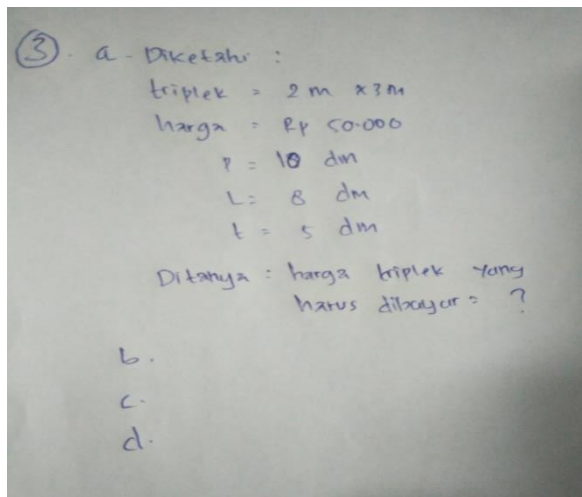 3. a - Diketahi :
triplek = 2 m x 3 m
harga = Rp 50.000
P = 10 dm
L = 8 dm
t = 5 dm
Ditanya : harga triplek yang
harus dibayar = ?
b.
c.
d.